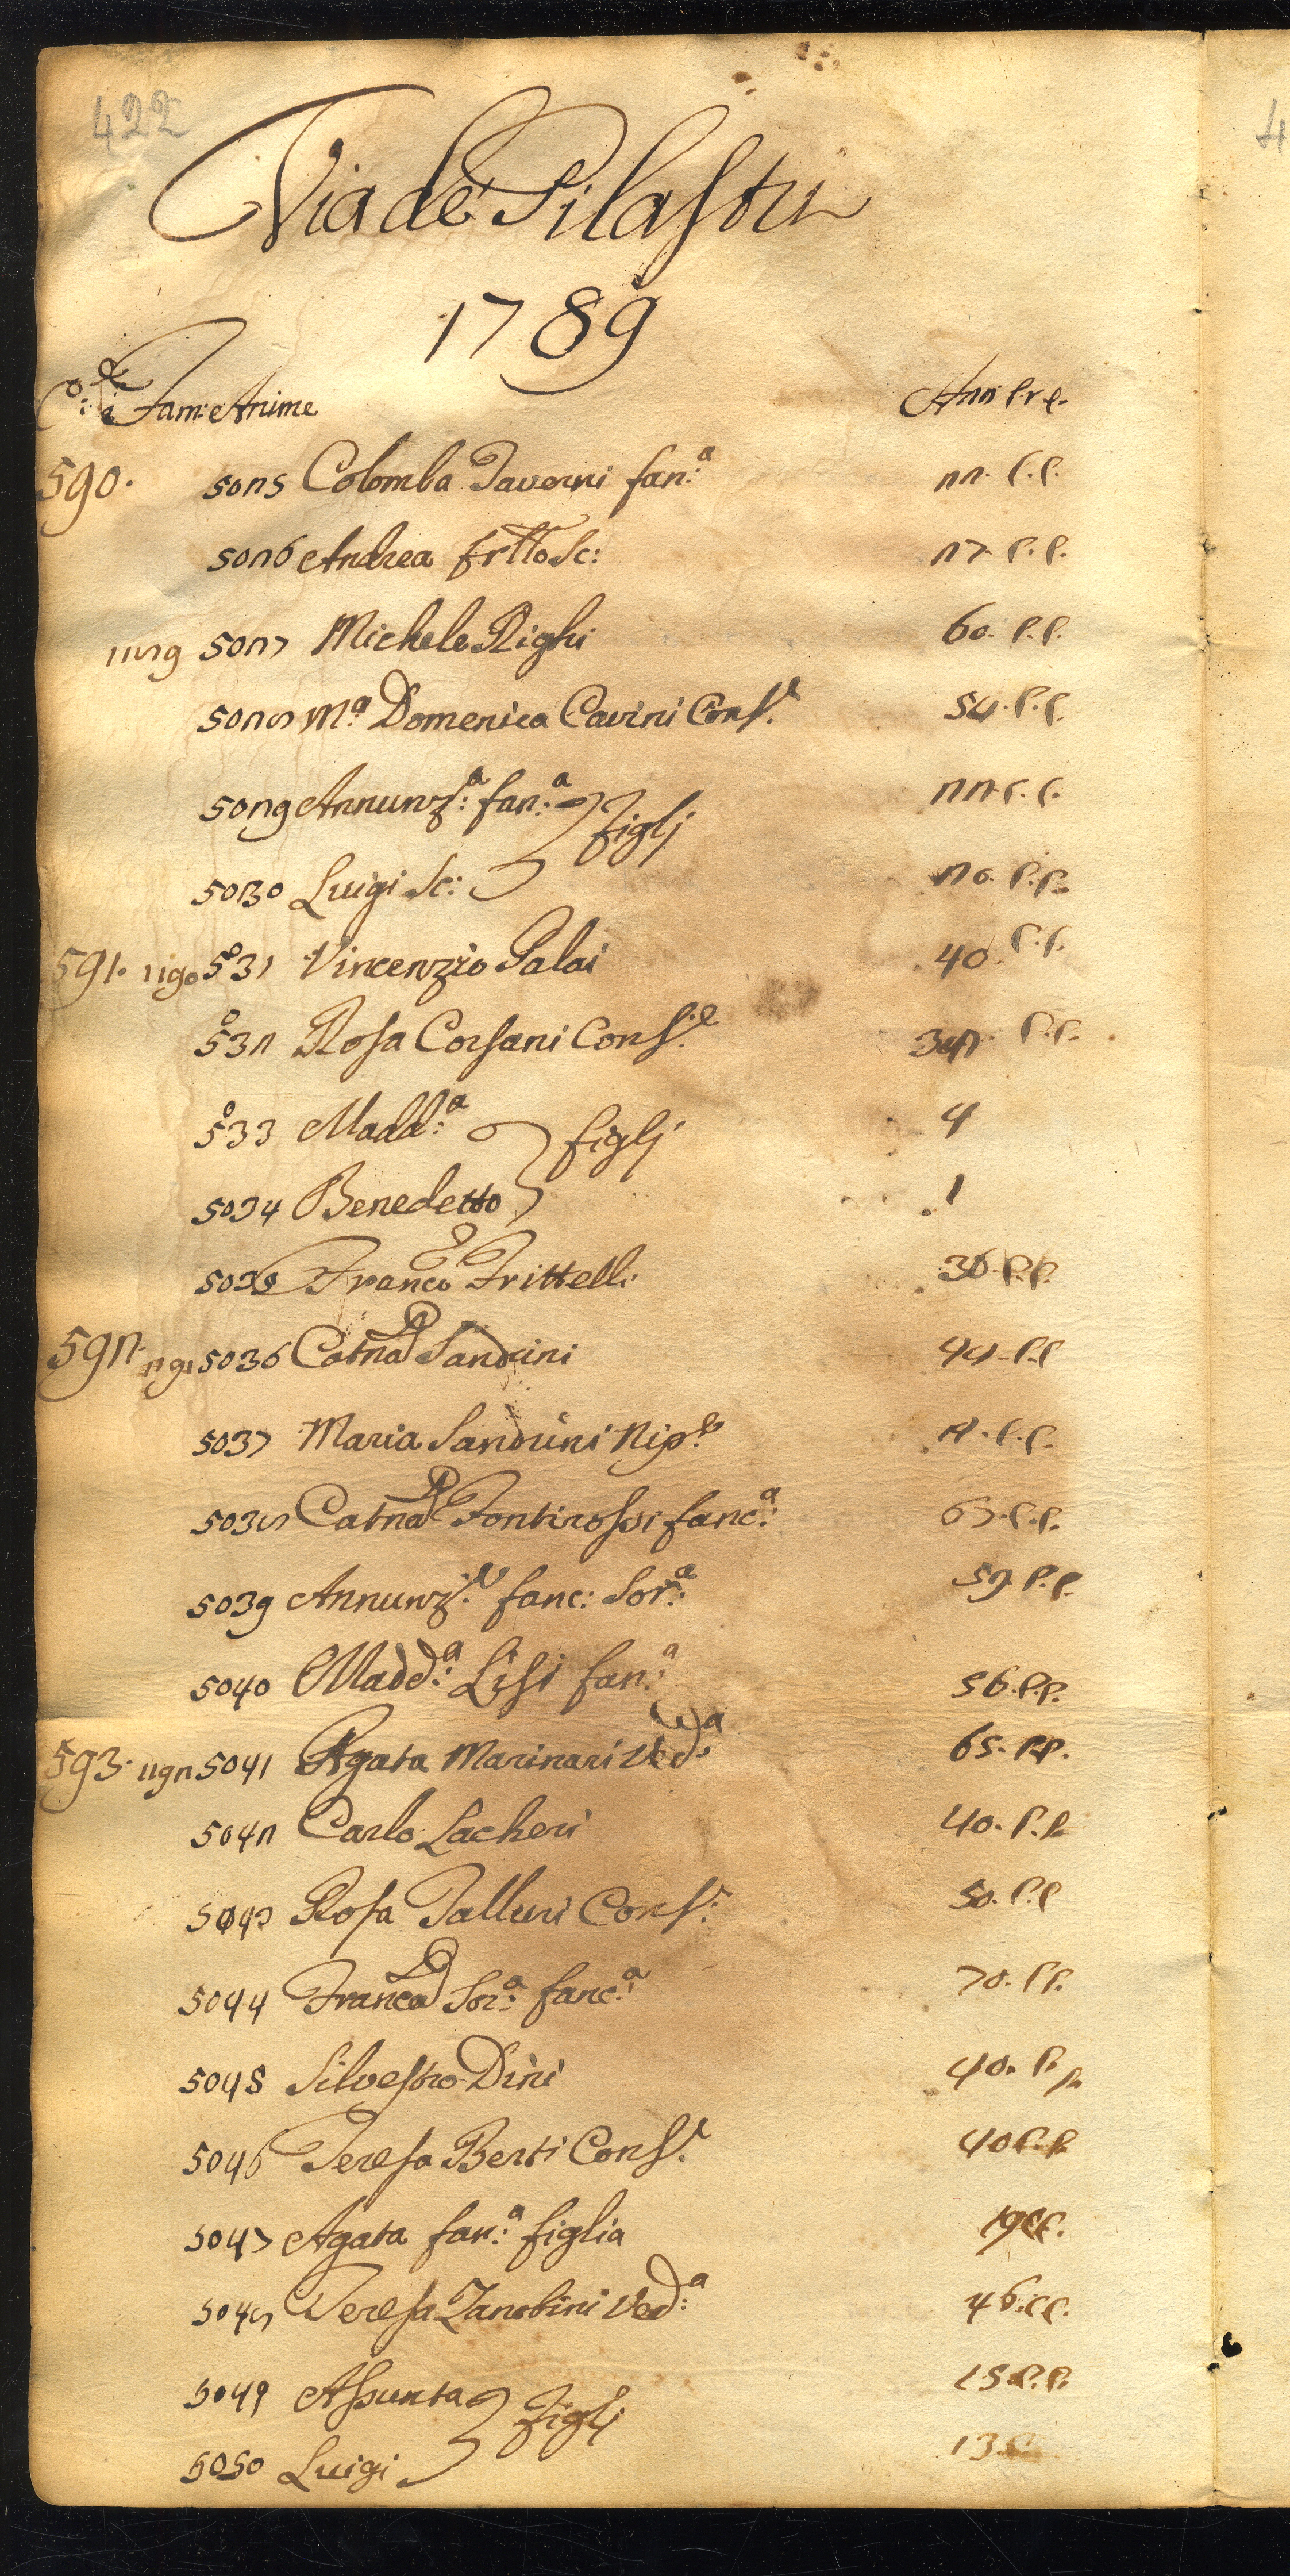 422
Via de' Pilastri
1789
C.e Fam: Anime Ann. P. e C.
590. 5025 Colomba Taverni fan:a 22. C. C.
5026 Andrea frtto Sc: 27. C. C.
1189 5027 Michele Righi 60. C. C.
5028 M.a Domenica Cavini Cons.e 54. C. C.
5029 Annunz:a fan:a figlj 22. C. C.
5030 Luigi Sc: 20. C. C.
591. 1190 5031 Vincenzio Palai 40. C. C.
5032 Rosa Corsani Cons.e C. C.
5033 Madd:a figlj 4
5034 Benedetto 1
5035 Franco Frittelli 36. C. C.
592. 1191 5036 Catna Sandrini 44. C. C.
5037 Maria Sandrini Nip.e C. C.
5038 Catna Fontirossi fanc:a 67. C. C.
5039 Annunz:a fanc: Sor:a 59. C. C.
5040 Madd:a Lisi fan:a 56. C. C.
593. 1192 5041 Agata Marinari Ved:a 65. C. C.
5042 Carlo Lacheri 40. C. C.
5043 Rosa Talluri Cons.e 50. C. C.
5044 Franca Sor:a fanc:a 70. C. C.
5045 Silvestro Dini 40. C. C.
5046 Teresa Berti Cons.e 40 C. C.
5047 Agata fan:a figlia 19 C. C.
5048 Teresa Zanobini Ved:a 46. C. C.
5049 Assunta figlj 15. C. C.
5050 Luigi 13. C.